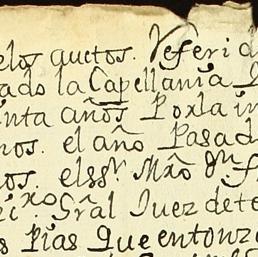 elos quetos. Veferi d
ado la Capellania
inta años Por la in
nos. el año Pasad
nos. el ssr. Mro Dn. f
Gral Juez de te
s Pias Que entonz